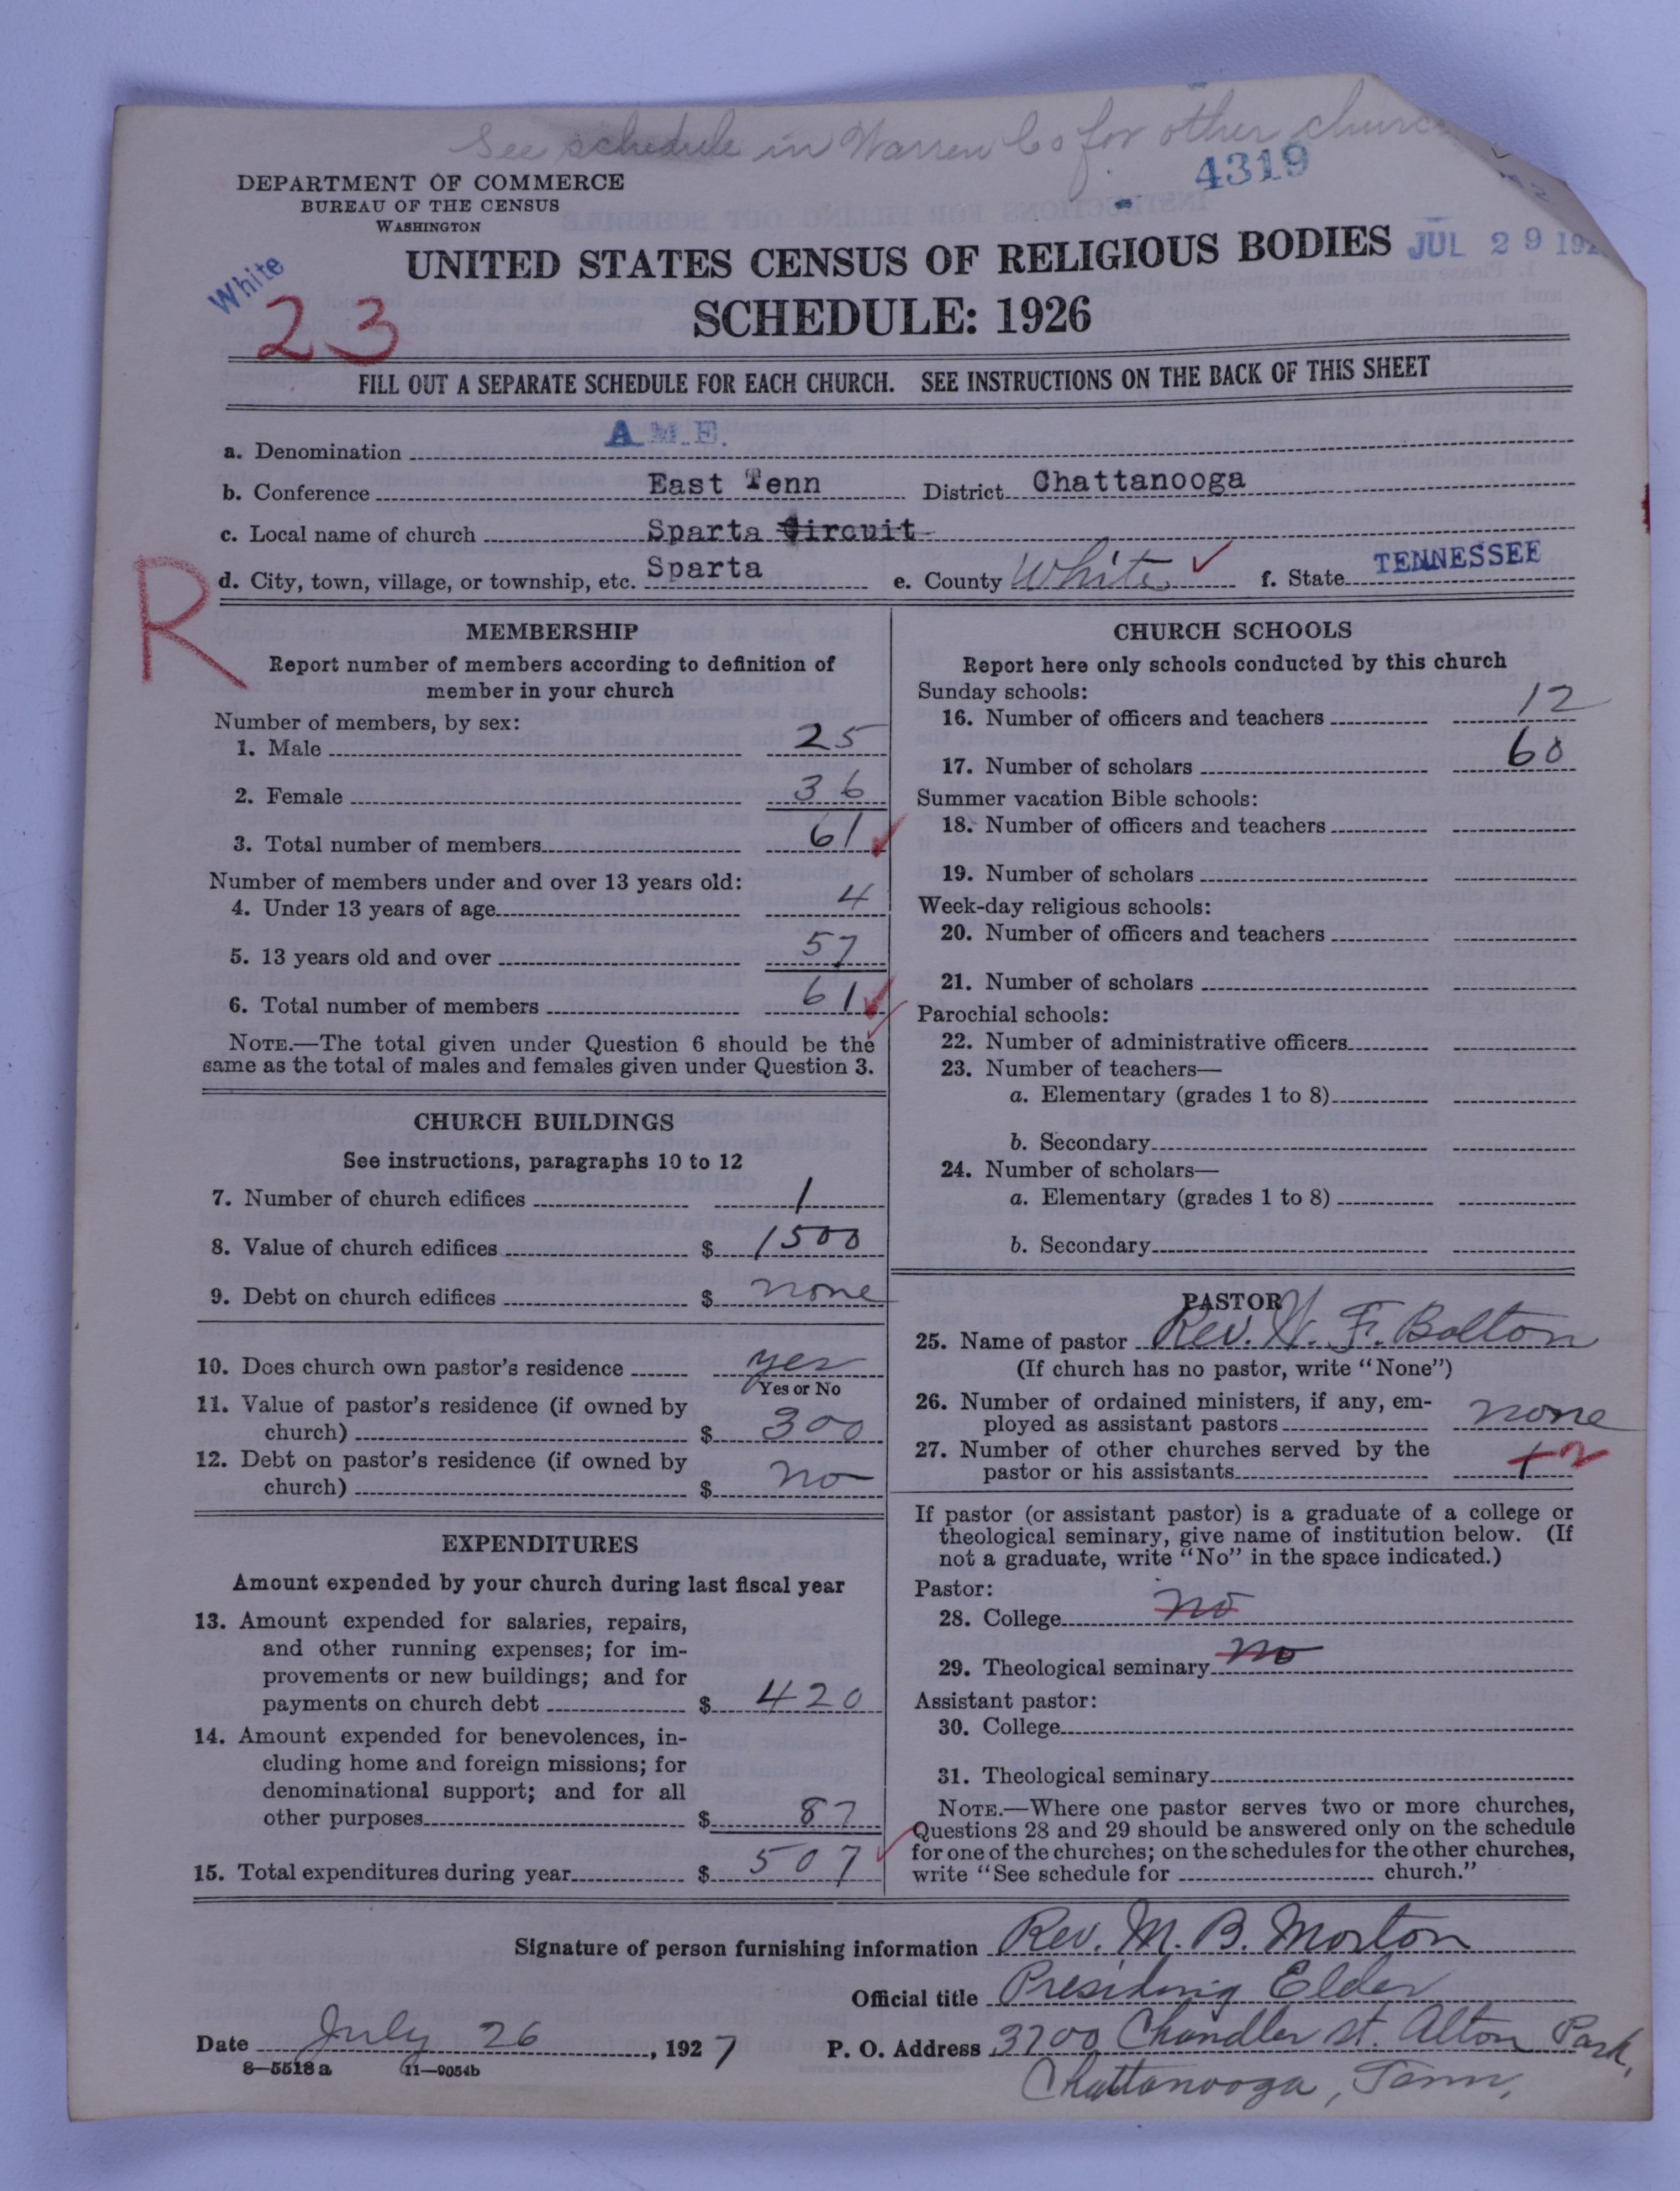 See schedule in Warren Co for other church
4319
DEPARTMENT OF COMMERCE
BUREAU OF THE CENSUS
WASHINGTON
UNITED STATES CENSUS OF RELIGIOUS BODIES
JUL 29 192
White
23
SCHEDULE: 1926
FILL OUT A SEPARATE SCHEDULE FOR EACH CHURCH. SEE INSTRUCTIONS ON THE BACK OF THIS SHEET
a. Denomination A.M.E.
b. Conference East Tenn District Chattanooga
c. Local name of church Sparta Circuit
d. City, town, village, or township, etc. Sparta e. County White f. State TENNESSEE
R
MEMBERSHIP
Report number of members according to definition of
member in your church
Number of members, by sex:
1. Male 25
2. Female 36
3. Total number of members 61
Number of members under and over 13 years old:
4. Under 13 years of age 4
5. 13 years old and over 57
6. Total number of members 61
NOTE.—The total given under Question 6 should be the
same as the total of males and females given under Question 3.
CHURCH BUILDINGS
See instructions, paragraphs 10 to 12
7. Number of church edifices 1
8. Value of church edifices $ 1500
9. Debt on church edifices $ none
10. Does church own pastor's residence yes
Yes or No
11. Value of pastor's residence (if owned by
church) $ 300
12. Debt on pastor's residence (if owned by
church) $ no
EXPENDITURES
Amount expended by your church during last fiscal year
13. Amount expended for salaries, repairs,
and other running expenses; for im-
provements or new buildings; and for
payments on church debt $ 420
14. Amount expended for benevolences, in-
cluding home and foreign missions; for
denominational support; and for all
other purposes $ 87
15. Total expenditures during year $ 507
CHURCH SCHOOLS
Report here only schools conducted by this church
Sunday schools:
16. Number of officers and teachers 12
17. Number of scholars 60
Summer vacation Bible schools:
18. Number of officers and teachers
19. Number of scholars
Week-day religious schools:
20. Number of officers and teachers
21. Number of scholars
Parochial schools:
22. Number of administrative officers
23. Number of teachers—
a. Elementary (grades 1 to 8)
b. Secondary
24. Number of scholars—
a. Elementary (grades 1 to 8)
b. Secondary
PASTOR
25. Name of pastor Rev. W. F. Bolton
(If church has no pastor, write "None")
26. Number of ordained ministers, if any, em-
ployed as assistant pastors none
27. Number of other churches served by the
pastor or his assistants 1 2
If pastor (or assistant pastor) is a graduate of a college or
theological seminary, give name of institution below. (If
not a graduate, write "No" in the space indicated.)
Pastor:
28. College no
29. Theological seminary no
Assistant pastor:
30. College
31. Theological seminary
NOTE.—Where one pastor serves two or more churches,
Questions 28 and 29 should be answered only on the schedule
for one of the churches; on the schedules for the other churches,
write "See schedule for church."
Signature of person furnishing information Rev. M. B. Morton
Official title Presiding Elder
Date July 26, 1927 P. O. Address 3700 Chandler st. Alton Park,
8—5518a 11—9054b
Chattanooga, Tenn,